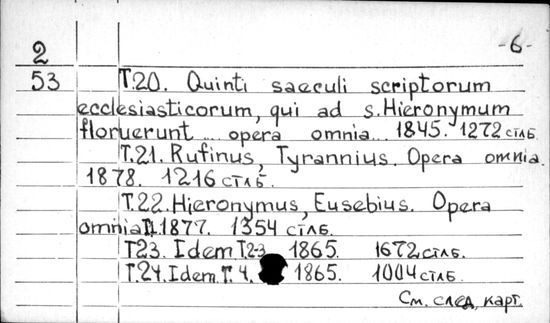 2
-6-
53 Т.20. Quinti saeculi scriptorum
ecclesiasticorum, qui ad s. Hieronymum
floruerunt ... opera omnia... 1845. 1272 стлб.
Т.21. Rufinus, Tyrannius. Opera omnia.
1878. 1216 стлб.
Т.22. Hieronymus, Eusebius. Opera
omnia. 1877. 1354 стлб.
Т.23. Idem. Т.2-3 1865. 1672 стлб.
Т.24. Idem. Т.4. 1865. 1004 стлб.
См. след. карт.